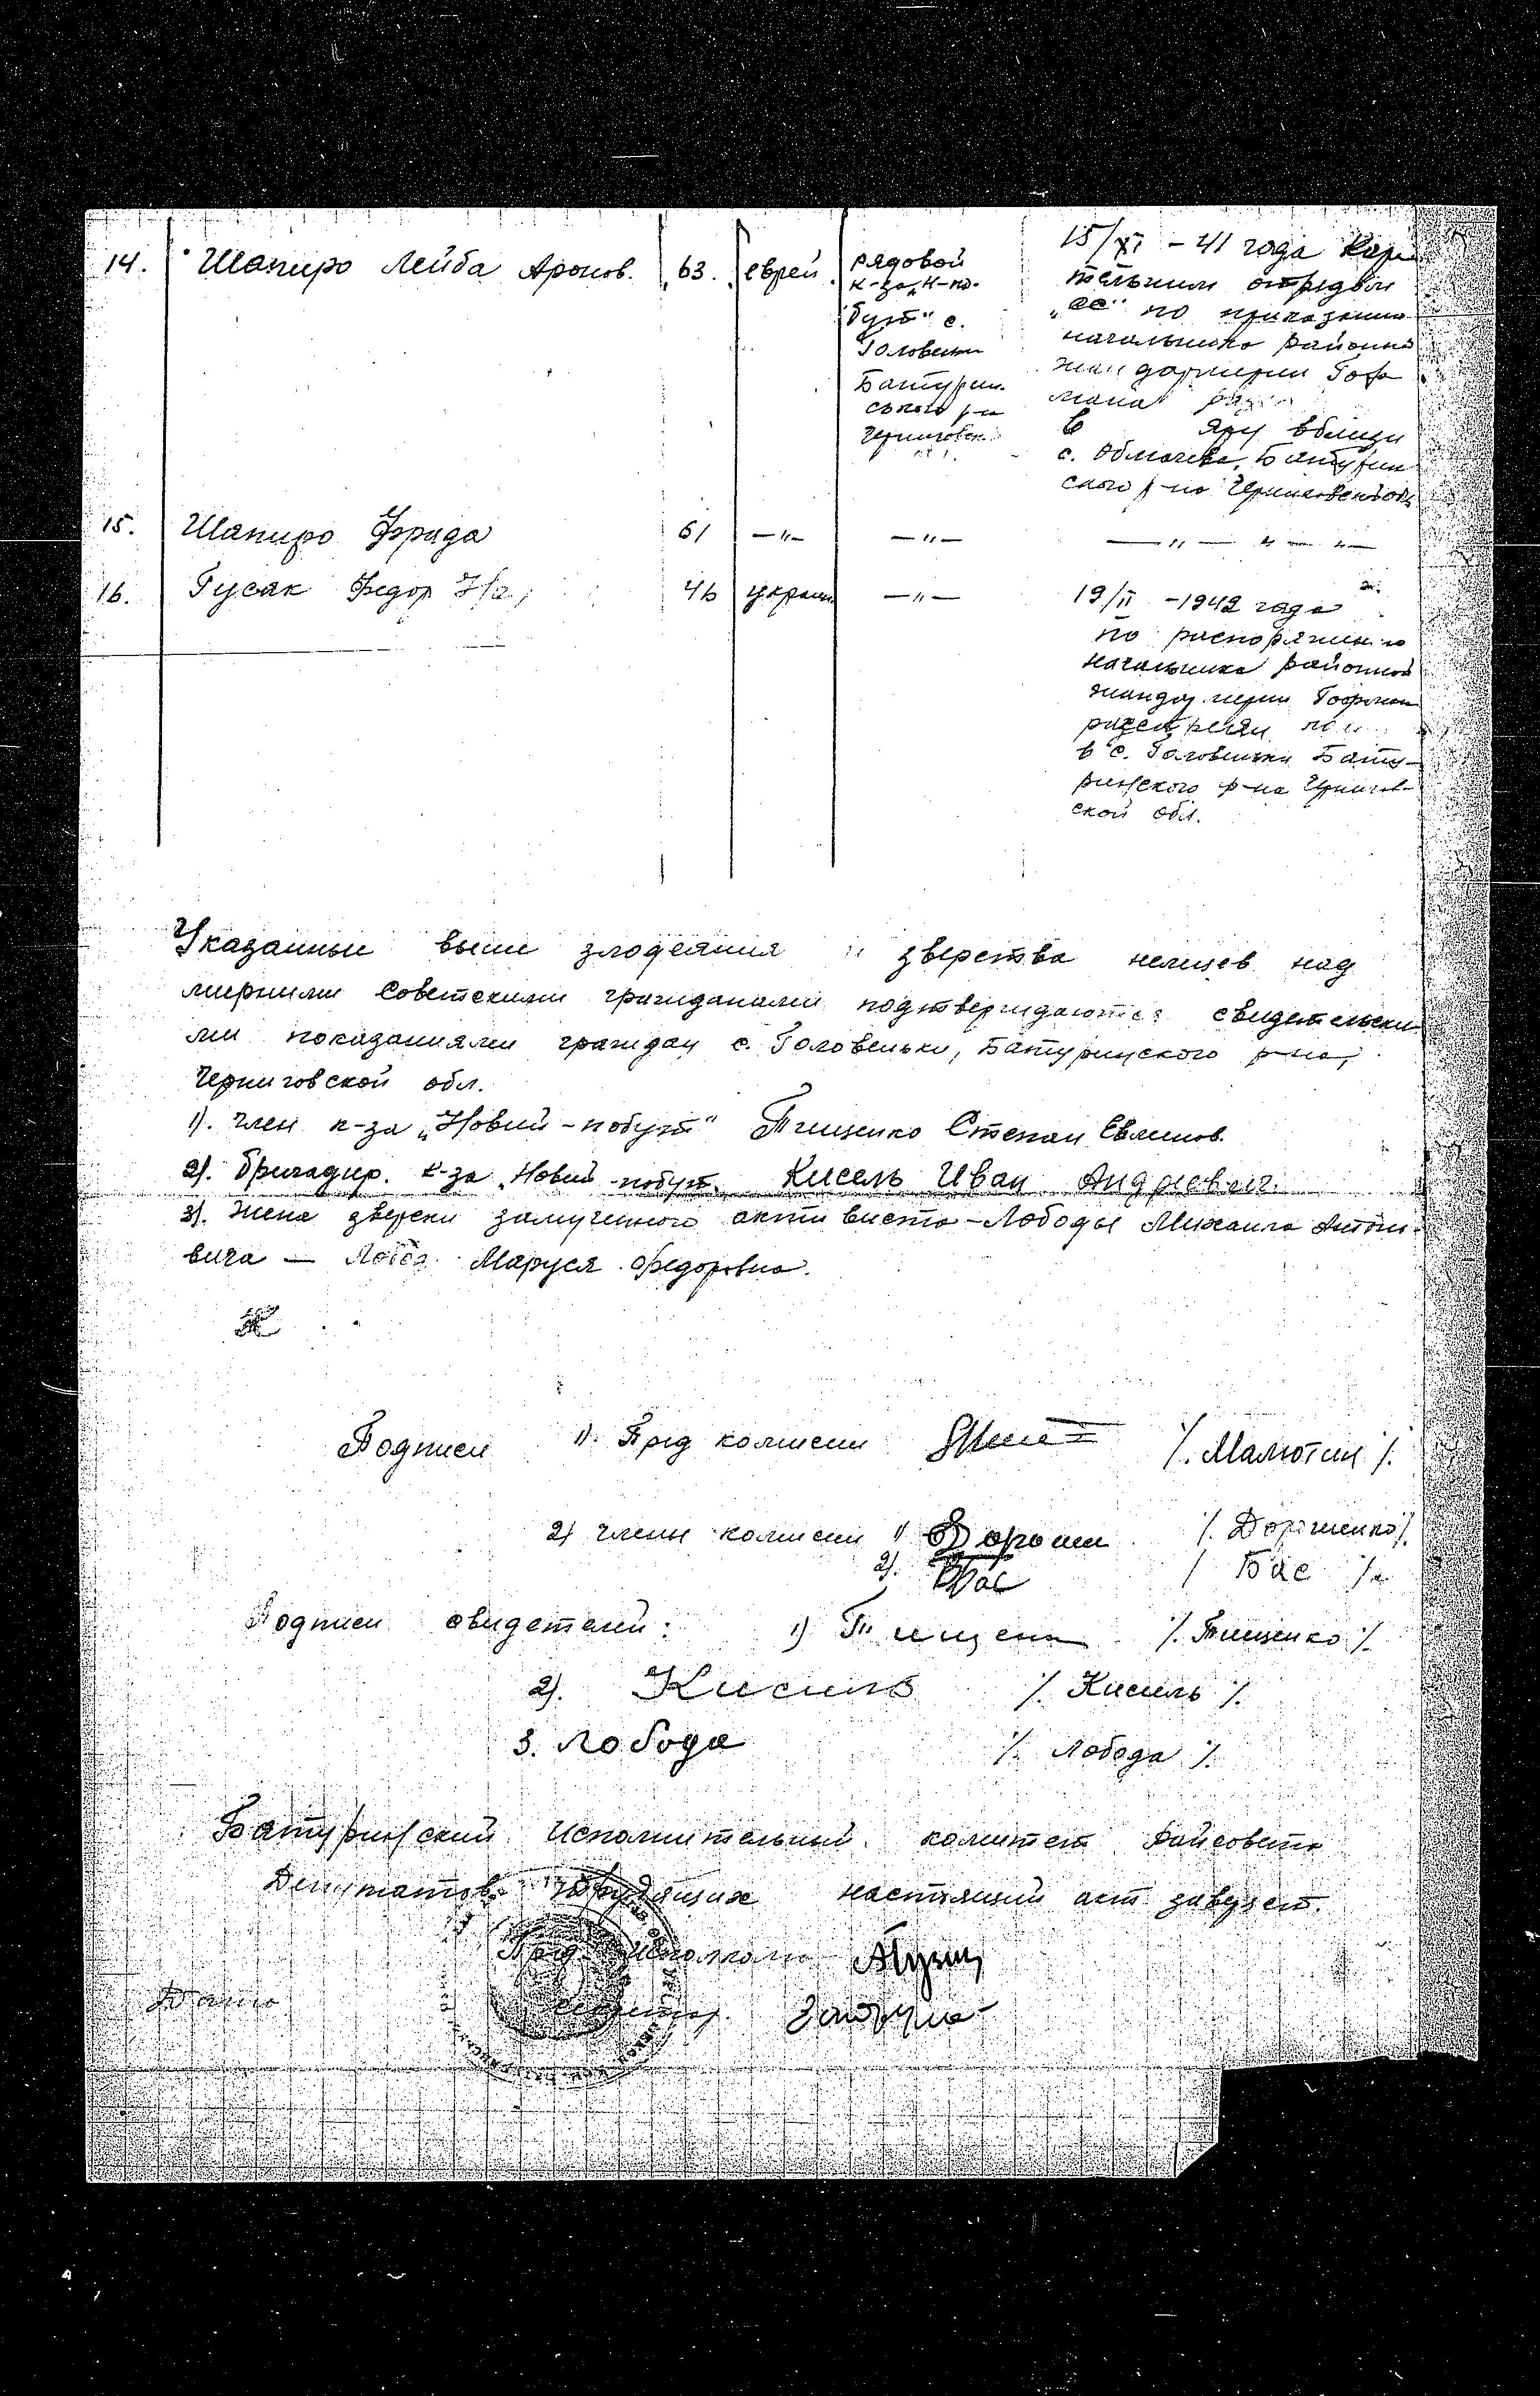 14. Шапиро Лейба Аронов. 63. еврей рядовой к-за „Н-по-
бут" с.
Головеньки
Батурин.
ського р-н
Черниговск.
15/XI - 41 года кара
тельным отрядом
„СС" по приказанию
начальника районной
жандармерии Гоф
мана
в яру вблизи
с. Обмачева, Батурин
ского р-на Черниговской обл
15. Шапиро Фрида 61 —"— —"— —"— " — "—
16. Гусак Федор 46 украин —"— 19/II - 1942 года
по распоряжению
начальника районной
жандармерии Гофман
расстрелян
в с. Головеньки Бату-
ринского р-на Чернигов-
ской обл.
Указанные выше злодеяния и зверства немцев над
мирными Советскими гражданами подтверждаются свидетельски-
ми показаниями граждан с. Головеньки, Батуринского р-на,
Черниговской обл.
1). член к-за „Новий-побут" Тищенко Степан Евлинов.
2). Бригадир. к-за „Новий-побут„ Кисель Иван Андреевич.
3). Жена зверски замученного активиста-Лободы Михаила Антоно-
вича — Лобода Маруся Федоровна.
Подписи 1). Пред комисии /. Малютин /.
2) члени комисии 1) Дорош /. Дорошенко /.
2). Бас / Бас /.
Подписи свидетелей: 1) Тищенко /. Тищенко /.
2). Кисиль /. Кисиль /.
3. Лобода /. Лобода /.
Батуринский Исполнительный комитет Райсовета
Депутатов трудящихся настоящий акт заверяет.
Пред. Исполкома
Дата Секретар.